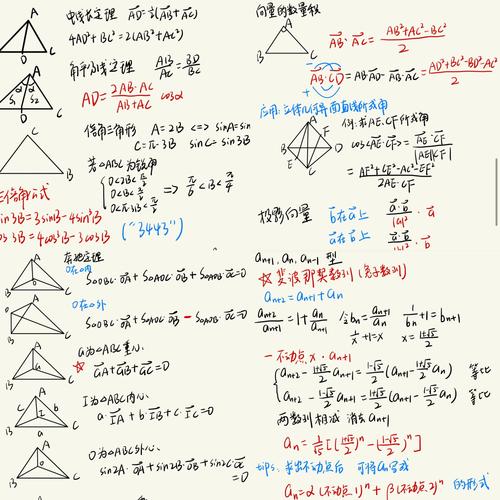 中线长定理 AD=½(AB+AC)
4AD²+BC²=2(AB²+AC²)
角平分线定理 AB/AC=BD/DC
AD=2AB·AC/(AB+AC) cosα
倍角三角形 A=2B <=> sinA=sin
C=π-3B sinC=sin3B
若△ABC为锐角
0<2B<π/2
0<B<π/2
0<π-3B<π/2
=> π/6<B<π/4
三倍角公式
sin3B=3sinB-4sin³B
cos3B=4cos³B-3cosB
("3443")
奔驰定理
O在△内
S△OBC·OA+S△AOC·OB+S△AOB·OC=0
O在△外
S△OBC·OA+S△AOC·OB-S△AOB·OC=0
G为△ABC重心
☆ GA+GB+GC=0
I为△ABC内心
a·IA+b·IB+c·IC=0
O为△ABC外心
sin2A·OA+sin2B·OB+sin2C·OC=0
向量的数量积
AB·AC=(AB²+AC²-BC²)/2
AB·CD=AB·AD-AB·AC=(AD²+BC²-BD²-AC²)/2
应用:立体几何异面直线所成角
例:求AE,CF所成角
cos<AE,CF>=AE·CF/|AE||CF|
=(AF²+CE²-AC²-EF²)/2AE·CF
投影向量 b在a上 a·b/|a|²·a
a在b上 a·b/|b|²·b
an+1,an,an-1型
☆斐波那契数列(兔子数列)
an+2=an+1+an
an+2/an+1=1+an/an+1 令bn=an+1/an 1/bn+1=bn+1
1/x+1=x x=(1±√5)/2
-不动点x·an+1
an+2-(1+√5)/2 an+1=(1-√5)/2(an+1-(1+√5)/2 an) 等比
an+2-(1-√5)/2 an+1=(1+√5)/2(an+1-(1-√5)/2 an) 等比
两数列相减 消去an+1
an=1/√5[((1+√5)/2)ⁿ-((1-√5)/2)ⁿ]
tips:求出不动点后 可将an写成
an=α(不动点1)ⁿ+β(不动点2)ⁿ 的形式